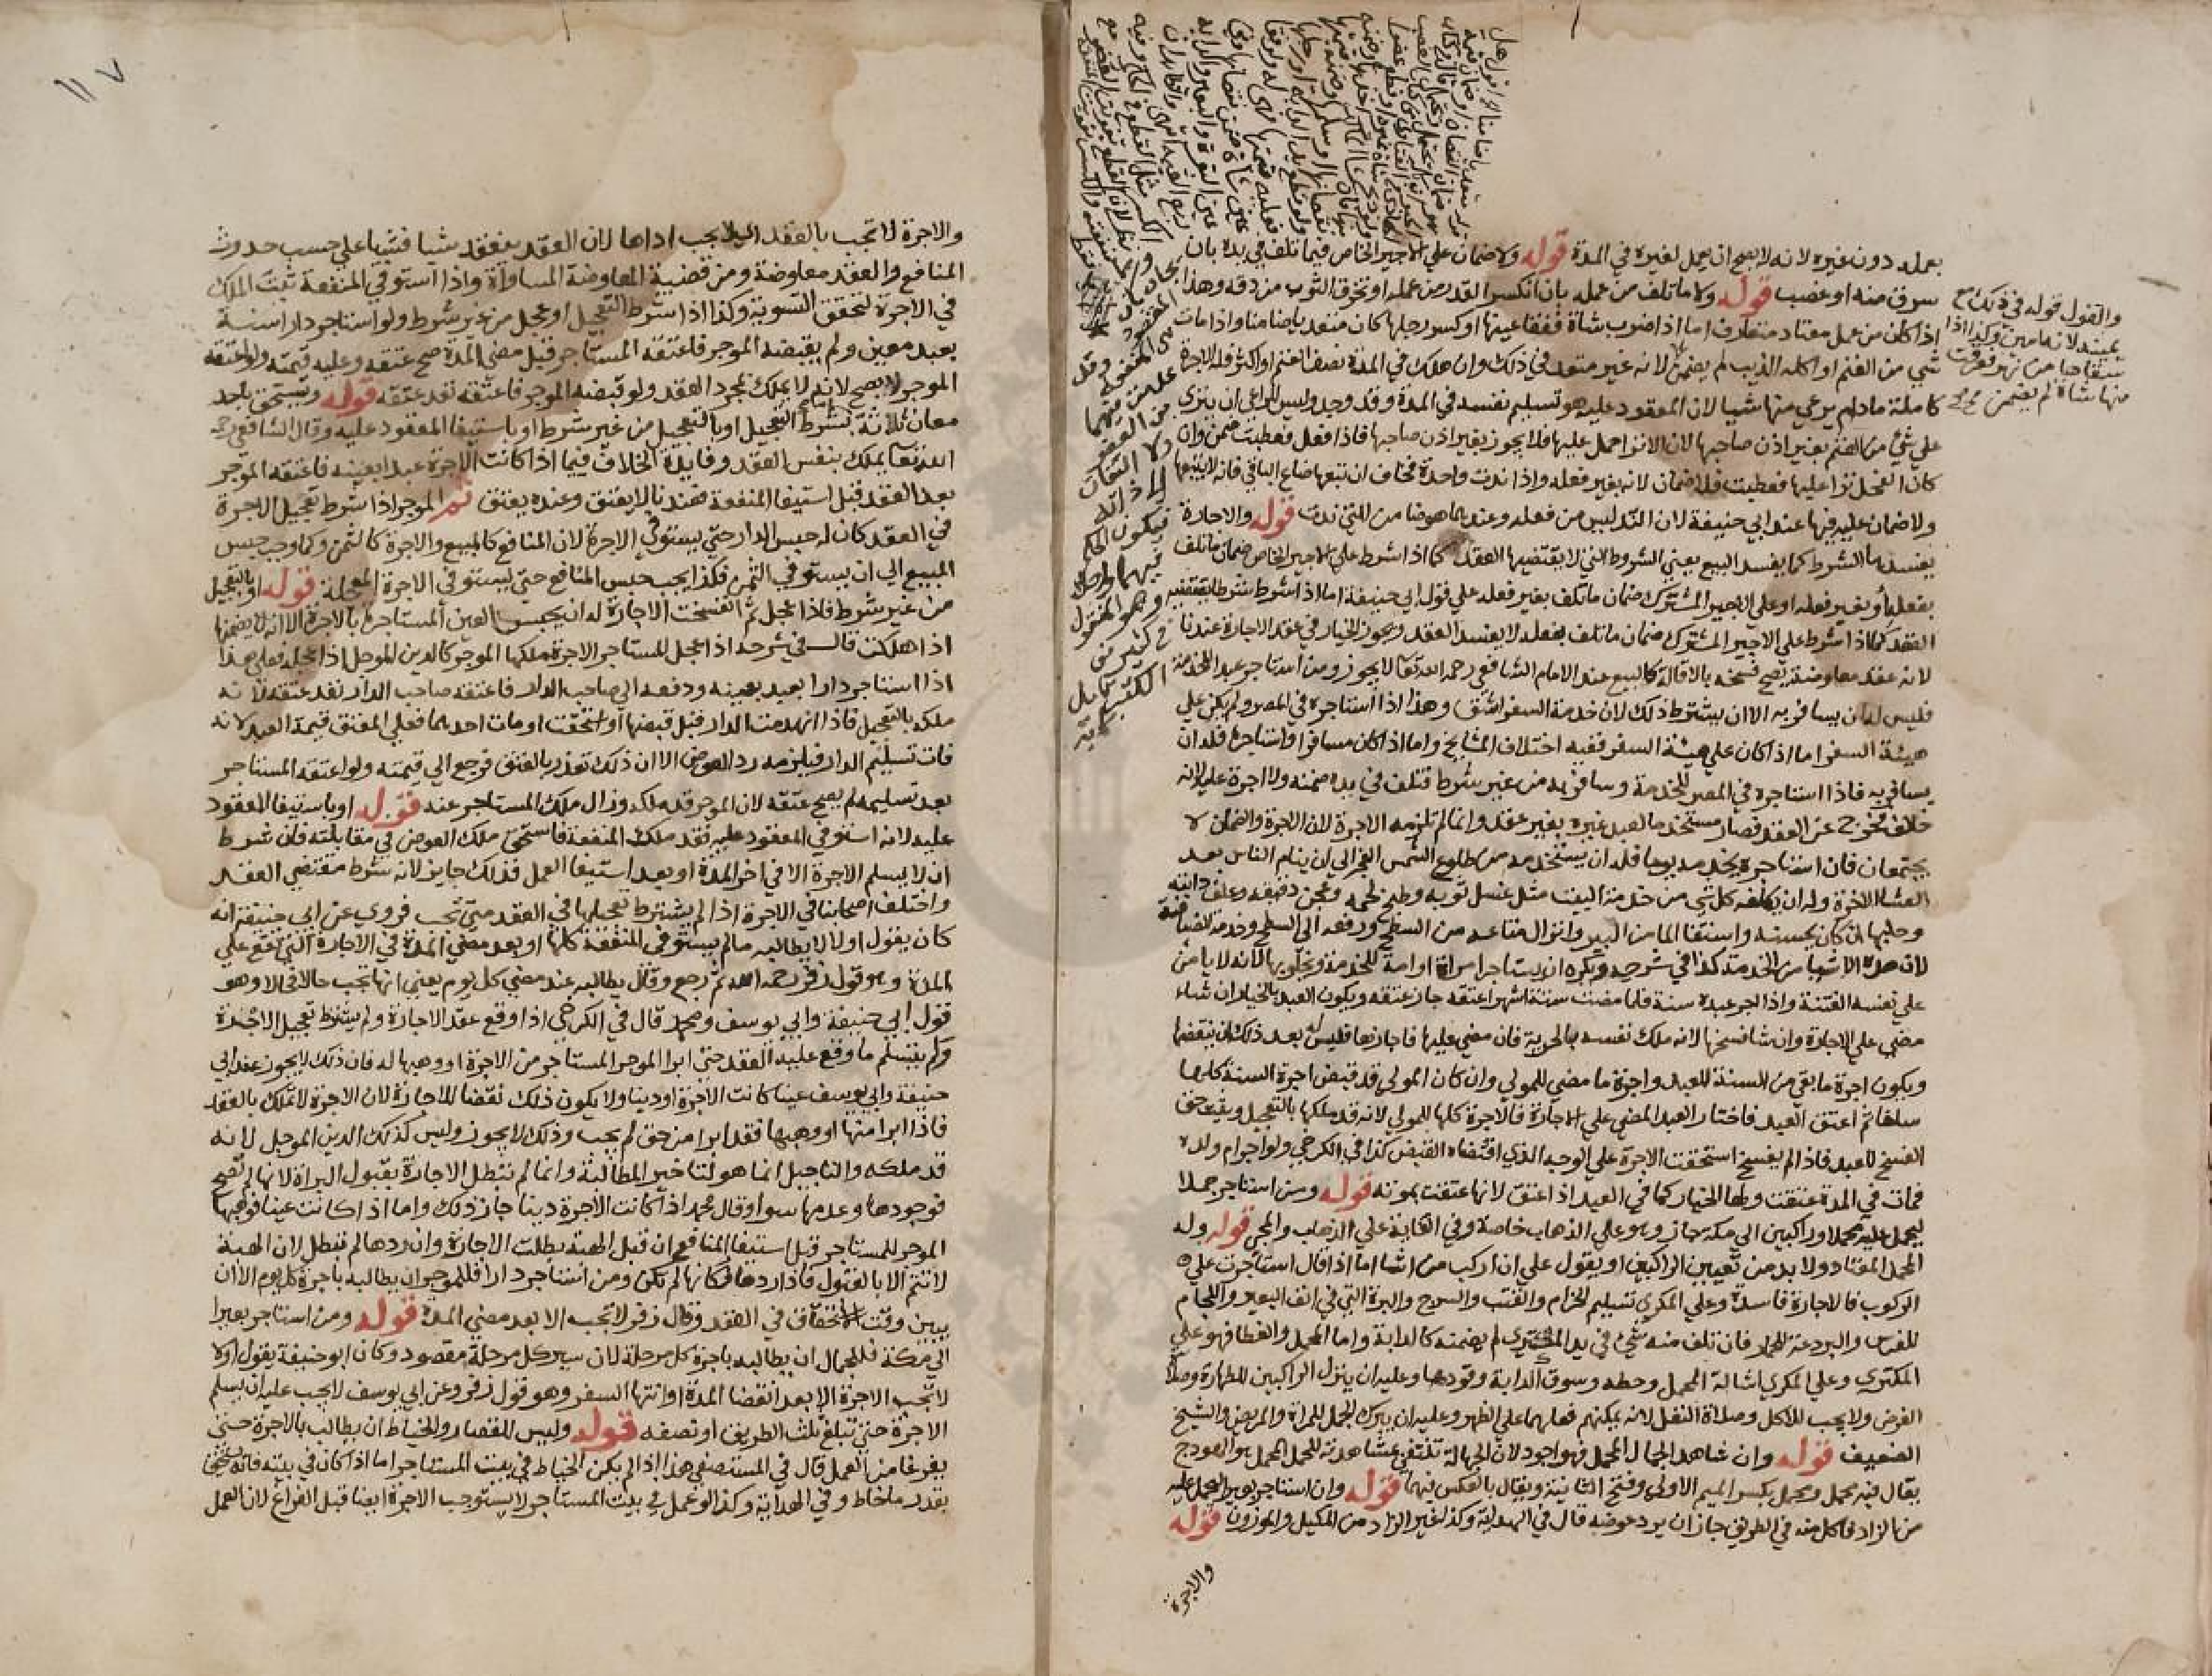 بعمله دون غيره لانه لا يصح ان يعمل لغيره في المدة قوله ولا ضمان علي الاجير الخاص فيما تلف في يده بان
سرق منه او غصب قوله ولا ما تلف من عمله بان انكسر القدر من عمله او تخرق الثوب من دقه وهذا
اذا كان من عمل معتاد متعارف اما اذا ضرب شاة ففقا عينها او كسر رجلها كان متعديا ضامنا واذا مات
شي من الغنم او اكله الذيب لم يضمن لانه غير متعد في ذلك وان هلك في المدة نصف الغنم او اكثر فله الاجرة
كاملة مادام يرعي منها شيا لان المعقود عليه هو تسليم نفسه في المدة وقد وجد وليس للراعي ان ينزي
علي شي من الغنم بغير اذن صاحبها لان الانزا حمل عليها فلا يجوز بغير اذن صاحبها فاذا فعل فعطبت ضمن وان
كان الفحل نزا عليها فعطبت فلا ضمان لانه بغير فعله واذا ندت واحدة فخاف ان تبعها ضاع الباقي فانه لا يتبعها
ولا ضمان عليه فيها عند ابي حنيفة لان الند ليس من فعله وعندهما هو ضامن للتي ندت قوله والاجارة
يفسدها الشرط كما يفسد البيع يعني الشروط التي لا يقتضيها العقد كما اذا شرط علي الاجير الخاص ضمان ما تلف
بفعله او بغير فعله او علي الاجير المشترك ضمان ما تلف بغير فعله علي قول ابي حنيفة اما اذا شرط شرطا يقتضيه
العقد كما اذا شرط علي الاجير المشترك ضمان ما تلف بفعله لا يفسد العقد ويجوز الخيار في عقد الاجارة عندنا
لانه عقد معاوضة يصح فسخه بالاقالة كالبيع عند الامام الشافعي رحمه الله تعا لا يجوز ومن استاجر عبدا للخدمة
فليس له ان يسافر به الا ان يشترط ذلك لان خدمة السفر اشق وهذا اذا استاجره في المصر ولم يكن علي
هيئة السفر اما اذا كان علي هيئة السفر ففيه اختلاف المشايخ واما اذا كان مسافرا واستاجره فله ان
يسافر به فاذا استاجره في المصر للخدمة وسافر به من غير شرط فتلف في يده ضمنه ولا اجرة عليه لانه
خالف فخرج عن العقد فصار مستخدما لعبد غيره بغير عقد وانما لم تلزمه الاجرة لان الاجرة والضمان لا
يجتمعان فان استاجره يخدمه يوما فله ان يستخدمه من طلوع الشمس الفجر الي ان ينام الناس بعد
العشا الاخرة وله ان يكلفه كل شي من خدمة البيت مثل غسل ثوبه وطبخ لحمه وعجن دقيقه وعلف دابته
وحلبها ان كان يحسنه واستقا الما من البير وانزال متاعه من السطح ورفعه الي السطح وخدمة اضيافه
لان هذه الاشيا من الخدمة كذا في شرحه ويكره ان يستاجر امراة او امة للخدمة ويخلو بها لانه لا يامن
علي نفسه الفتنة واذا اجر عبده سنة فلما مضت ستة اشهر اعتقه جاز عتقه ويكون العبد بالخيار ان شاء
مضي علي الاجارة وان شا فسخها لانه ملك نفسه بالحرية فان مضي عليها فاجازها فليس له بعد ذلك ان ينقضها
ويكون اجرة ما بقي من السنة للعبد واجرة ما مضي للمولي وان كان المولي قد قبض اجرة السنة كلها
سلفا ثم اعتق العبد فاختار العبد المضي علي الاجارة فالاجرة كلها للمولي لانه قد ملكها بالتعجيل وبقي حق
الفسخ للعبد فاذا لم يفسخ استحقت الاجرة علي الوجه الذي اقتضاه القبض كذا في الكرخي ولو اجر ام ولده
فمات في المدة عتقت ولها الخيار كما في العبد اذا عتق لانها عتقت بموته قوله ومن استاجر جملا
ليحمل عليه محملا وراكبين الي مكة جاز وهو علي الذهاب خاصة وفي الغاية علي الذهاب والمجي قوله وله
المحمل المعتاد ولا بد من تعيين الراكبين او يقول علي ان اركب من اشا اما اذا قال استاجرت علي
الركوب فالاجارة فاسدة وعلي المكري تسليم الحزام والقتب والسرج والبرة التي في انف البعير واللجام
للفرس والبردعة للحمار فان تلف منه شي في يد المكتري لم يضمنه كالدابة واما المحمل والغطا فهو علي
المكتري وعلي المكري اشالة المحمل وحطه وسوق الدابة وقودها وعليه ان ينزل الراكبين للطهارة وصلاة
الفرض ولا يجب للاكل وصلاة النفل لانه يمكنهم فعلهما علي الظهر وعليه ان يبرك الجمل للمراة والمريض والشيخ
الضعيف قوله وان شاهد الجمال المحمل فهو اجود لان الجهالة تنتفي بمشاهدته المحمل المحمل هو الهودج
يقال فيه محمل ومحمل بكسر الميم الاولي وفتح الثانية ويقال بالعكس فيهما قوله وان استاجر بعيرا ليحمل عليه
من الزاد فاكل منه في الطريق جاز ان يرد عوضه قال في الهداية وكذا غير الزاد من المكيل والموزون قوله
والاجرة
والقول قوله في ذلك مع
يمينه لانه امين وكذا اذا
ساقها من نهر فغرقت
منها شاة لم يضمن
١١٧
والاجرة لا تجب بالعقد اي لا يجب اداها لان العقد ينعقد شيا فشيا علي حسب حدوث
المنافع والعقد معاوضة ومن قضية المعاوضة المساواة واذا استوفي المنفعة ثبت الملك
في الاجرة لتحقق التسوية وكذا اذا شرط التعجيل او عجل من غير شرط ولو استاجر دارا سنة
بعبد معين ولم يقبضه الموجر فاعتقه المستاجر قبل مضي المدة صح عتقه وعليه قيمته ولو اعتقه
الموجر لا يصح لانه لا يملك بمجرد العقد ولو قبضه الموجر فاعتقه نفذ عتقه قوله ويستحق باحد
معان ثلاثة بشرط التعجيل او بالتعجيل من غير شرط او باستيفا المعقود عليه وقال الشافعي رحمه
الله تعا يملك بنفس العقد وفايدة الخلاف فيما اذا كانت الاجرة عبدا بعينه فاعتقه الموجر
بعد العقد قبل استيفا المنفعة فعندنا لا يعتق وعنده يعتق ثم الموجر اذا شرط تعجيل الاجرة
في العقد كان له حبس الدار حتي يستوفي الاجرة لان المنافع كالمبيع والاجرة كالثمن وكما وجب حبس
المبيع الي ان يستوفي الثمن فكذا يجب حبس المنافع حتي يستوفي الاجرة المعجلة قوله او بالتعجيل
من غير شرط فاذا عجل ثم انفسخت الاجارة له ان يحبس العين المستاجرة بالاجرة الا انه لا يضمنها
اذا هلكت قال في شرحه اذا عجل المستاجر الاجرة ملكها الموجر كالدين الموجل اذا عجله فعلي هذا
اذا استاجر دارا بعبد بعينه ودفعه الي صاحب الدار فاعتقه صاحب الدار نفذ عتقه لانه
ملكه بالتعجيل فاذا انهدمت الدار قبل قبضها او استحقت او مات احدهما فعلي المعتق قيمة العبد لانه
فات تسليم الدار فيلزمه رد العوض الا ان ذلك تعذر بالعتق فرجع الي قيمته ولو اعتقه المستاجر
بعد تسليمه لم يصح عتقه لان الموجر قد ملكه وزال ملك المستاجر عنه قوله او باستيفا المعقود
عليه لانه استوفي المعقود عليه فقد ملك المنفعة فاستحق ملك العوض في مقابلته فان شرط
ان لا يسلم الاجرة الا في اخر المدة او بعد استيفا العمل فذلك جايز لانه شرط مقتضي العقد
واختلف اصحابنا في الاجرة اذا لم يشترط تعجيلها في العقد متي تجب فروي عن ابي حنيفة انه
كان يقول اولا لا يطالبه مالم يستوفي المنفعة كلها او بعد مضي المدة في الاجارة التي تقع علي
المدة وهو قول زفر رحمه الله ثم رجع وقال يطالبه عند مضي كل يوم يعني انها تجب حالا فحالا وهو
قول ابي حنيفة وابي يوسف ومحمد قال في الكرخي اذا وقع عقد الاجارة ولم يشترط تعجيل الاجرة
ولم يتسلم ما وقع عليه العقد حتي ابرا الموجر المستاجر من الاجرة او وهبها له فان ذلك لا يجوز عند ابي
حنيفة وابي يوسف عينا كانت الاجرة او دينا ولا يكون ذلك نقضا للاجارة لان الاجرة لا تملك بالعقد
فاذا ابرا منها او وهبها فقد ابرا من حق لم يجب وذلك لا يجوز وليس كذلك الدين الموجل لانه
قد ملكه والتاجيل انما هو لتاخير المطالبة وانما لم تبطل الاجارة بقبول البراة لانها لم تصح
فوجودها وعدمها سوا وقال محمد اذا كانت الاجرة دينا جاز ذلك واما اذا كانت عينا فوهبها
الموجر للمستاجر قبل استيفا المنافع ان قبل الهبة بطلت الاجارة وان ردها لم تبطل لان الهبة
لا تتم الا بالقبول فاذا ردها فكانها لم تكن ومن استاجر دارا فللموجر ان يطالبه باجرة كل يوم الا ان
يبين وقت الاستحقاق في العقد وقال زفر لا تجب الا بعد مضي المدة قوله ومن استاجر بعيرا
الي مكة فللجمال ان يطالبه باجرة كل مرحلة لان سير كل مرحلة مقصود وكان ابو حنيفة يقول اولا
لا تجب الاجرة الا بعد انقضا المدة او انتها السفر وهو قول زفر وعن ابي يوسف لا يجب عليه ان يسلم
الاجرة حتي تبلغ ثلث الطريق او نصفه قوله وليس للقصار والخياط ان يطالب بالاجرة حتي
يفرغا من العمل قال في المستصفي هذا اذا لم يكن الخياط في بيت المستاجر اما اذا كان في بيته فانه يستحق
بقدر ما خاط وفي الهداية وكذا لو عمل في بيت المستاجر لا يستوجب الاجرة ايضا قبل الفراغ لان العمل